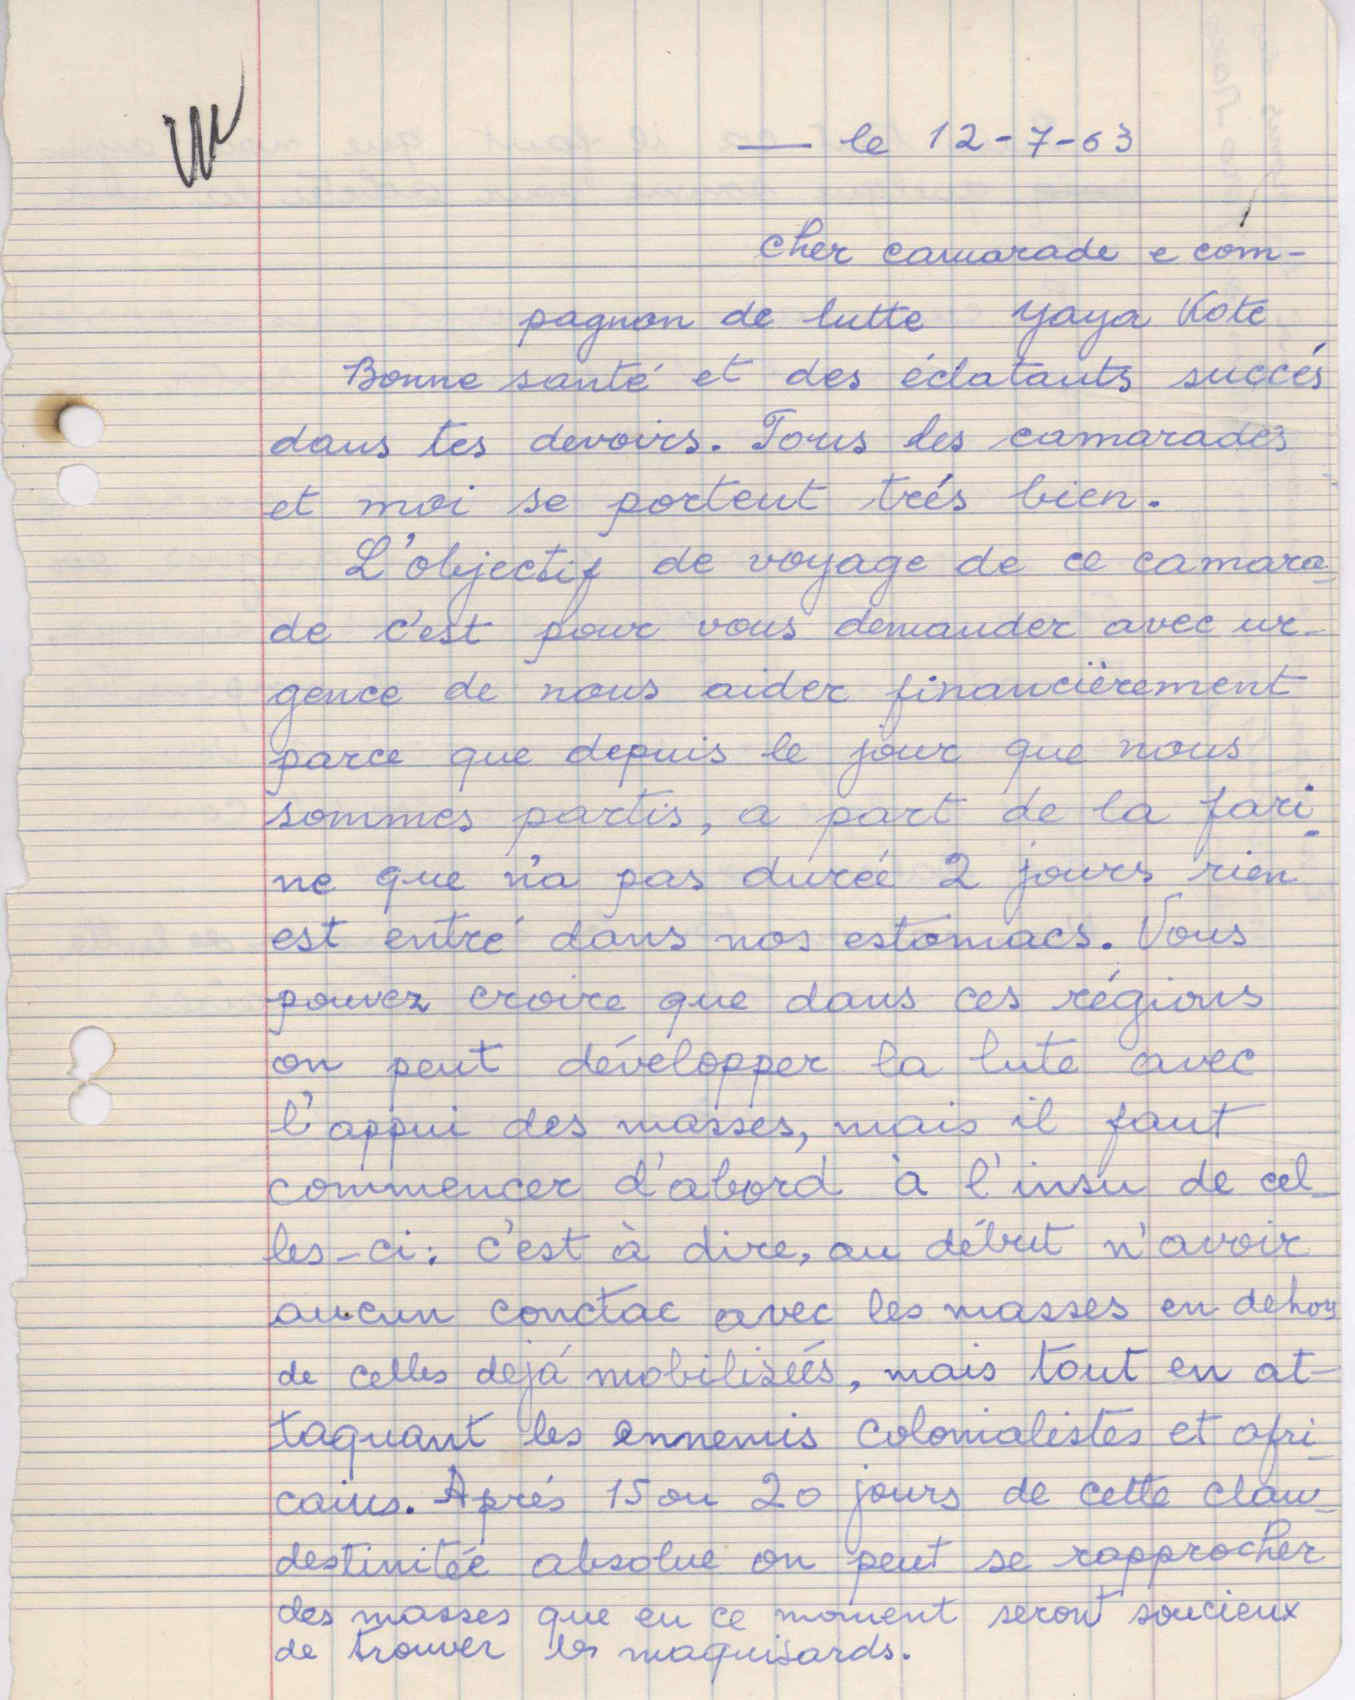 — le 12-7-63
cher camarade e com-
pagnon de lutte Yaya Koté
Bonne santé et des éclatants succés
dans tes devoirs. Tous les camarades
et moi se portent trés bien.
L'objectif de voyage de ce camara-
de c'est pour vous demander avec ur-
gence de nous aider financièrement
parce que depuis le jour que nous
sommes partis, a part de la fari-
ne que n'a pas durée 2 jours rien
est entré dans nos estomacs. Vous
pouvez croire que dans ces régions
on peut développer la lute avec
l'appui des masses, mais il faut
commencer d'abord à l'insu de cel-
les-ci: c'est à dire, au début n'avoir
aucun conctac avec les masses en dehors
de celles dejá mobiliseés, mais tout en at-
taquant les ennemis colonialistes et afri-
cains. Aprés 15 ou 20 jours de cette clan-
destinitée absolue on peut se rapprocher
des masses que en ce moment seront soucieux
de trouver les maquisards.